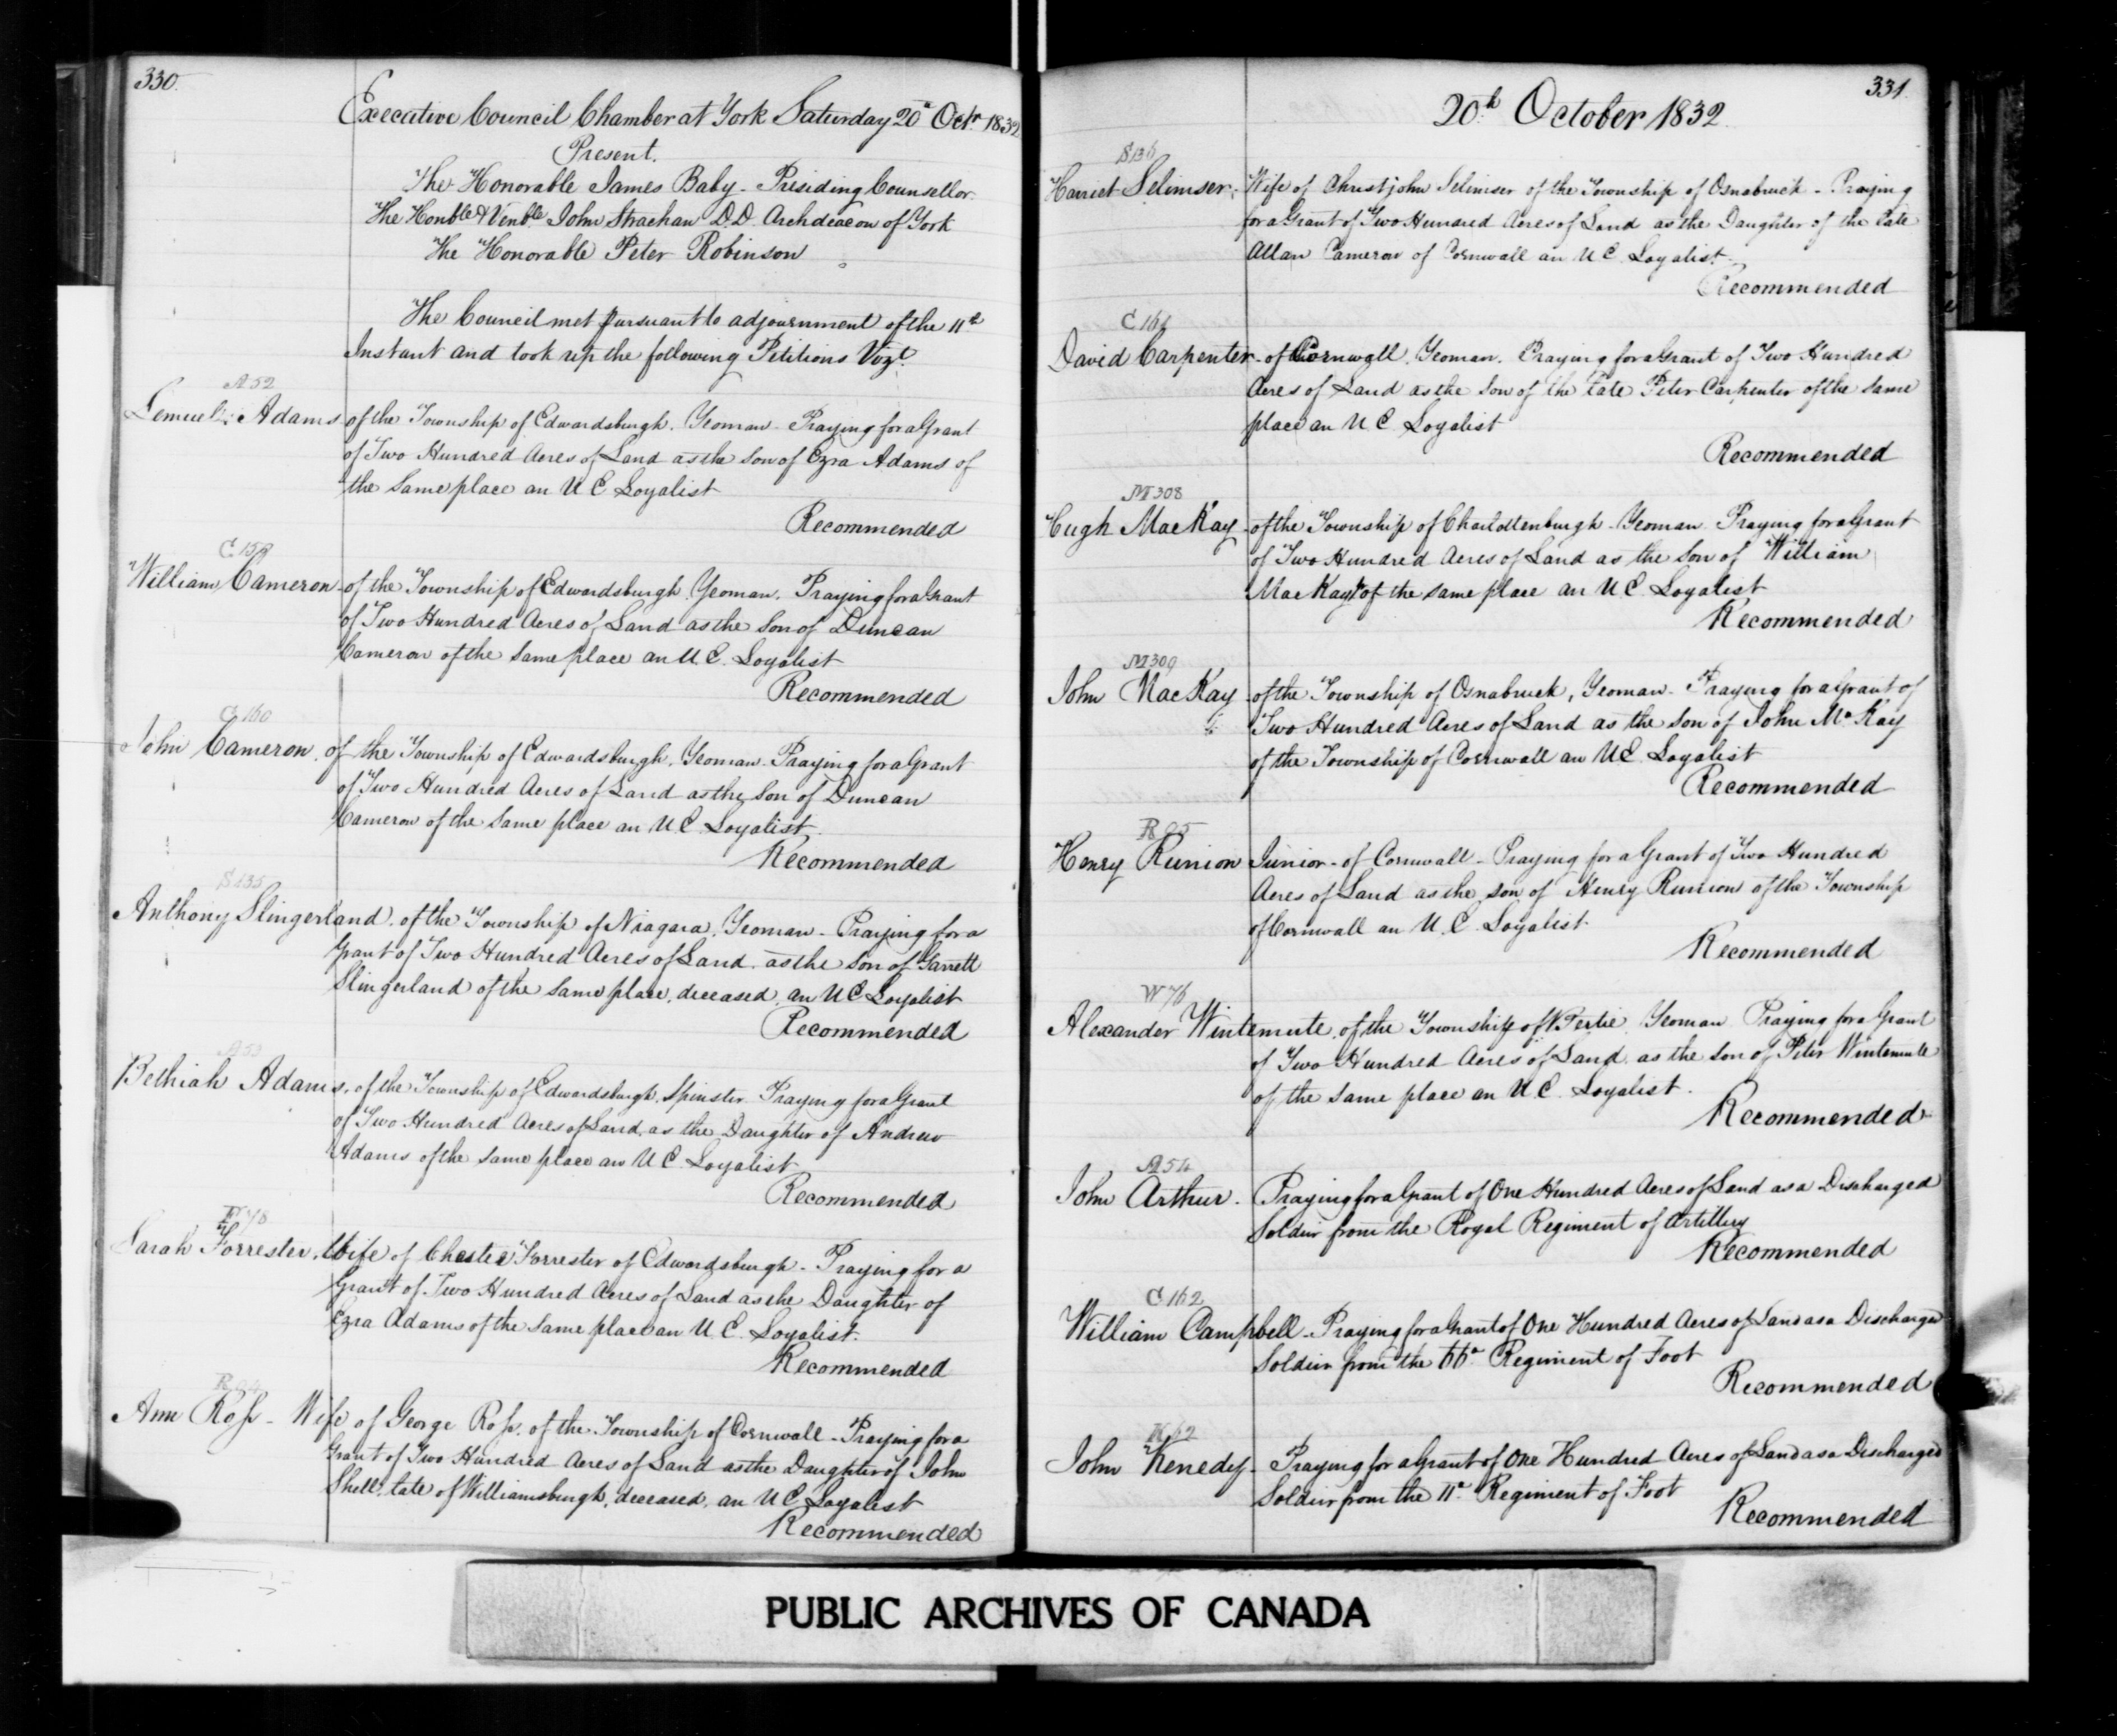 330.
Executive Council Chamber at York Saturday 20th Octr. 1832
Present.
The Honorable James Baby - Presiding Counsellor
The Honble & Venble John Strachan D.D. Archdeacon of York
The Honorable Peter Robinson
The Council met pursuant to adjournment of the 11th
Instant and took up the following Petitions Vizt.
A 52
Lemuel Adams of the Township of Edwardsburgh, Yeoman - Praying for a Grant
of Two Hundred Acres of Land as the Son of Ezra Adams of
the Same place an U E Loyalist
Recommended
C 159
William Cameron - of the Township of Edwardsburgh Yeoman, Praying for a Grant
of Two Hundred Acres of Land as the Son of Duncan
Cameron of the Same place an U.E. Loyalist
Recommended
C 160
John Cameron, of the Township of Edwardsburgh, Yeoman - Praying for a Grant
of Two Hundred Acres of Land as the Son of Duncan
Cameron of the Same place an U.E. Loyalist.
Recommended
S 135
Anthony Slingerland, of the Township of Niagara, Yeoman - Praying for a
Grant of Two Hundred Acres of Land, as the Son of Garrett
Slingerland of the Same place, deceased, an U E Loyalist
Recommended
A 53
Bethiah Adams, of the Township of Edwardsburgh, Spinster Praying for a Grant
of Two Hundred Acres of Land, as the Daughter of Andrew
Adams of the Same place an U E Loyalist
Recommended
F 78
Sarah Forrester, Wife of Chester Forrester of Edwardsburgh - Praying for a
Grant of Two Hundred Acres of Land as the Daughter of
Ezra Adams of the Same place an U. E. Loyalist.
Recommended
Ann Ross - Wife of George Ross, of the Township of Cornwall - Praying for a
Grant of Two Hundred Acres of Land as the Daughter of John
Shell, late of Williamsburgh, deceased, an U E Loyalist
Recommended
331.
20th October 1832.
S 136
Harriet Selimser, Wife of Christjohn Selimser of the Township of Osnabruck - Praying
for a Grant of Two Hundred Acres of Land as the Daughter of the late
Allan Cameron of Cornwall an U E Loyalist.
Recommended
C 161
David Carpenter - of Cornwall, Yeoman, Praying for a Grant of Two Hundred
Acres of Land as the Son of the late Peter Carpenter of the Same
place an U E Loyalist
Recommended
M 308
Hugh MacKay - of the Township of Charlottenburgh - Yeoman Praying for a Grant
of Two Hundred Acres of Land as the Son of William
MacKay of the same place an U E Loyalist
Recommended
M 309
John MacKay - of the Township of Osnabruck, Yeoman - Praying for a Grant of
Two Hundred Acres of Land as the Son of John Mc Kay
of the Township of Cornwall an U E Loyalist
Recommended
R 95
Henry Runion Junior - of Cornwall - Praying for a Grant of Two Hundred
Acres of Land as the son of Henry Runion of the Township
of Cornwall an U. E. Loyalist
Recommended
W 76
Alexander Wintemute, of the Township of Bertie Yeoman Praying for a Grant
of Two Hundred Acres of Land, as the son of Peter Wintemute
of the same place an U E. Loyalist.
Recommended
A 54
John Arthur. Praying for a Grant of One Hundred Acres of Land as a Discharged
Soldier from the Royal Regiment of Artillery
Recommended
C 162
William Campbell - Praying for a Grant of One Hundred Acres of Land as a Discharged
Soldier from the 66th Regiment of Foot
Recommended
K 62
John Kenedy - Praying for a Grant of One Hundred Acres of Land as a Discharged
Soldier from the 11th Regiment of Foot
Recommended
PUBLIC ARCHIVES OF CANADA